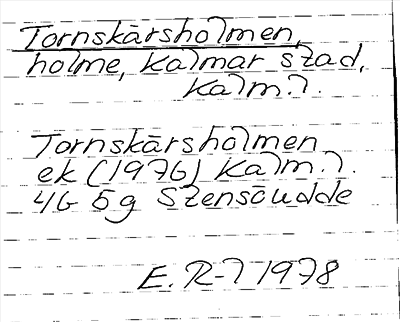 Tornskärsholmen,
holme, Kalmar stad,
Kalm.l.
Tornskärsholmen
ek (1976) Kalm.l.
4G 5g Stensöudde
E. R-l 1978